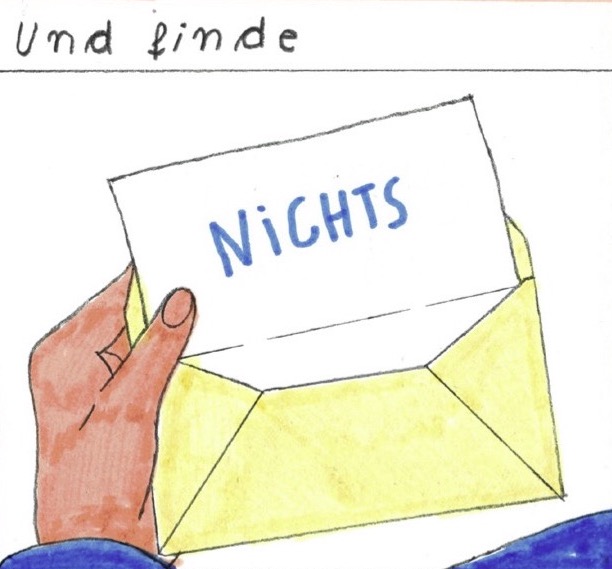 Und finde
NiCHTS